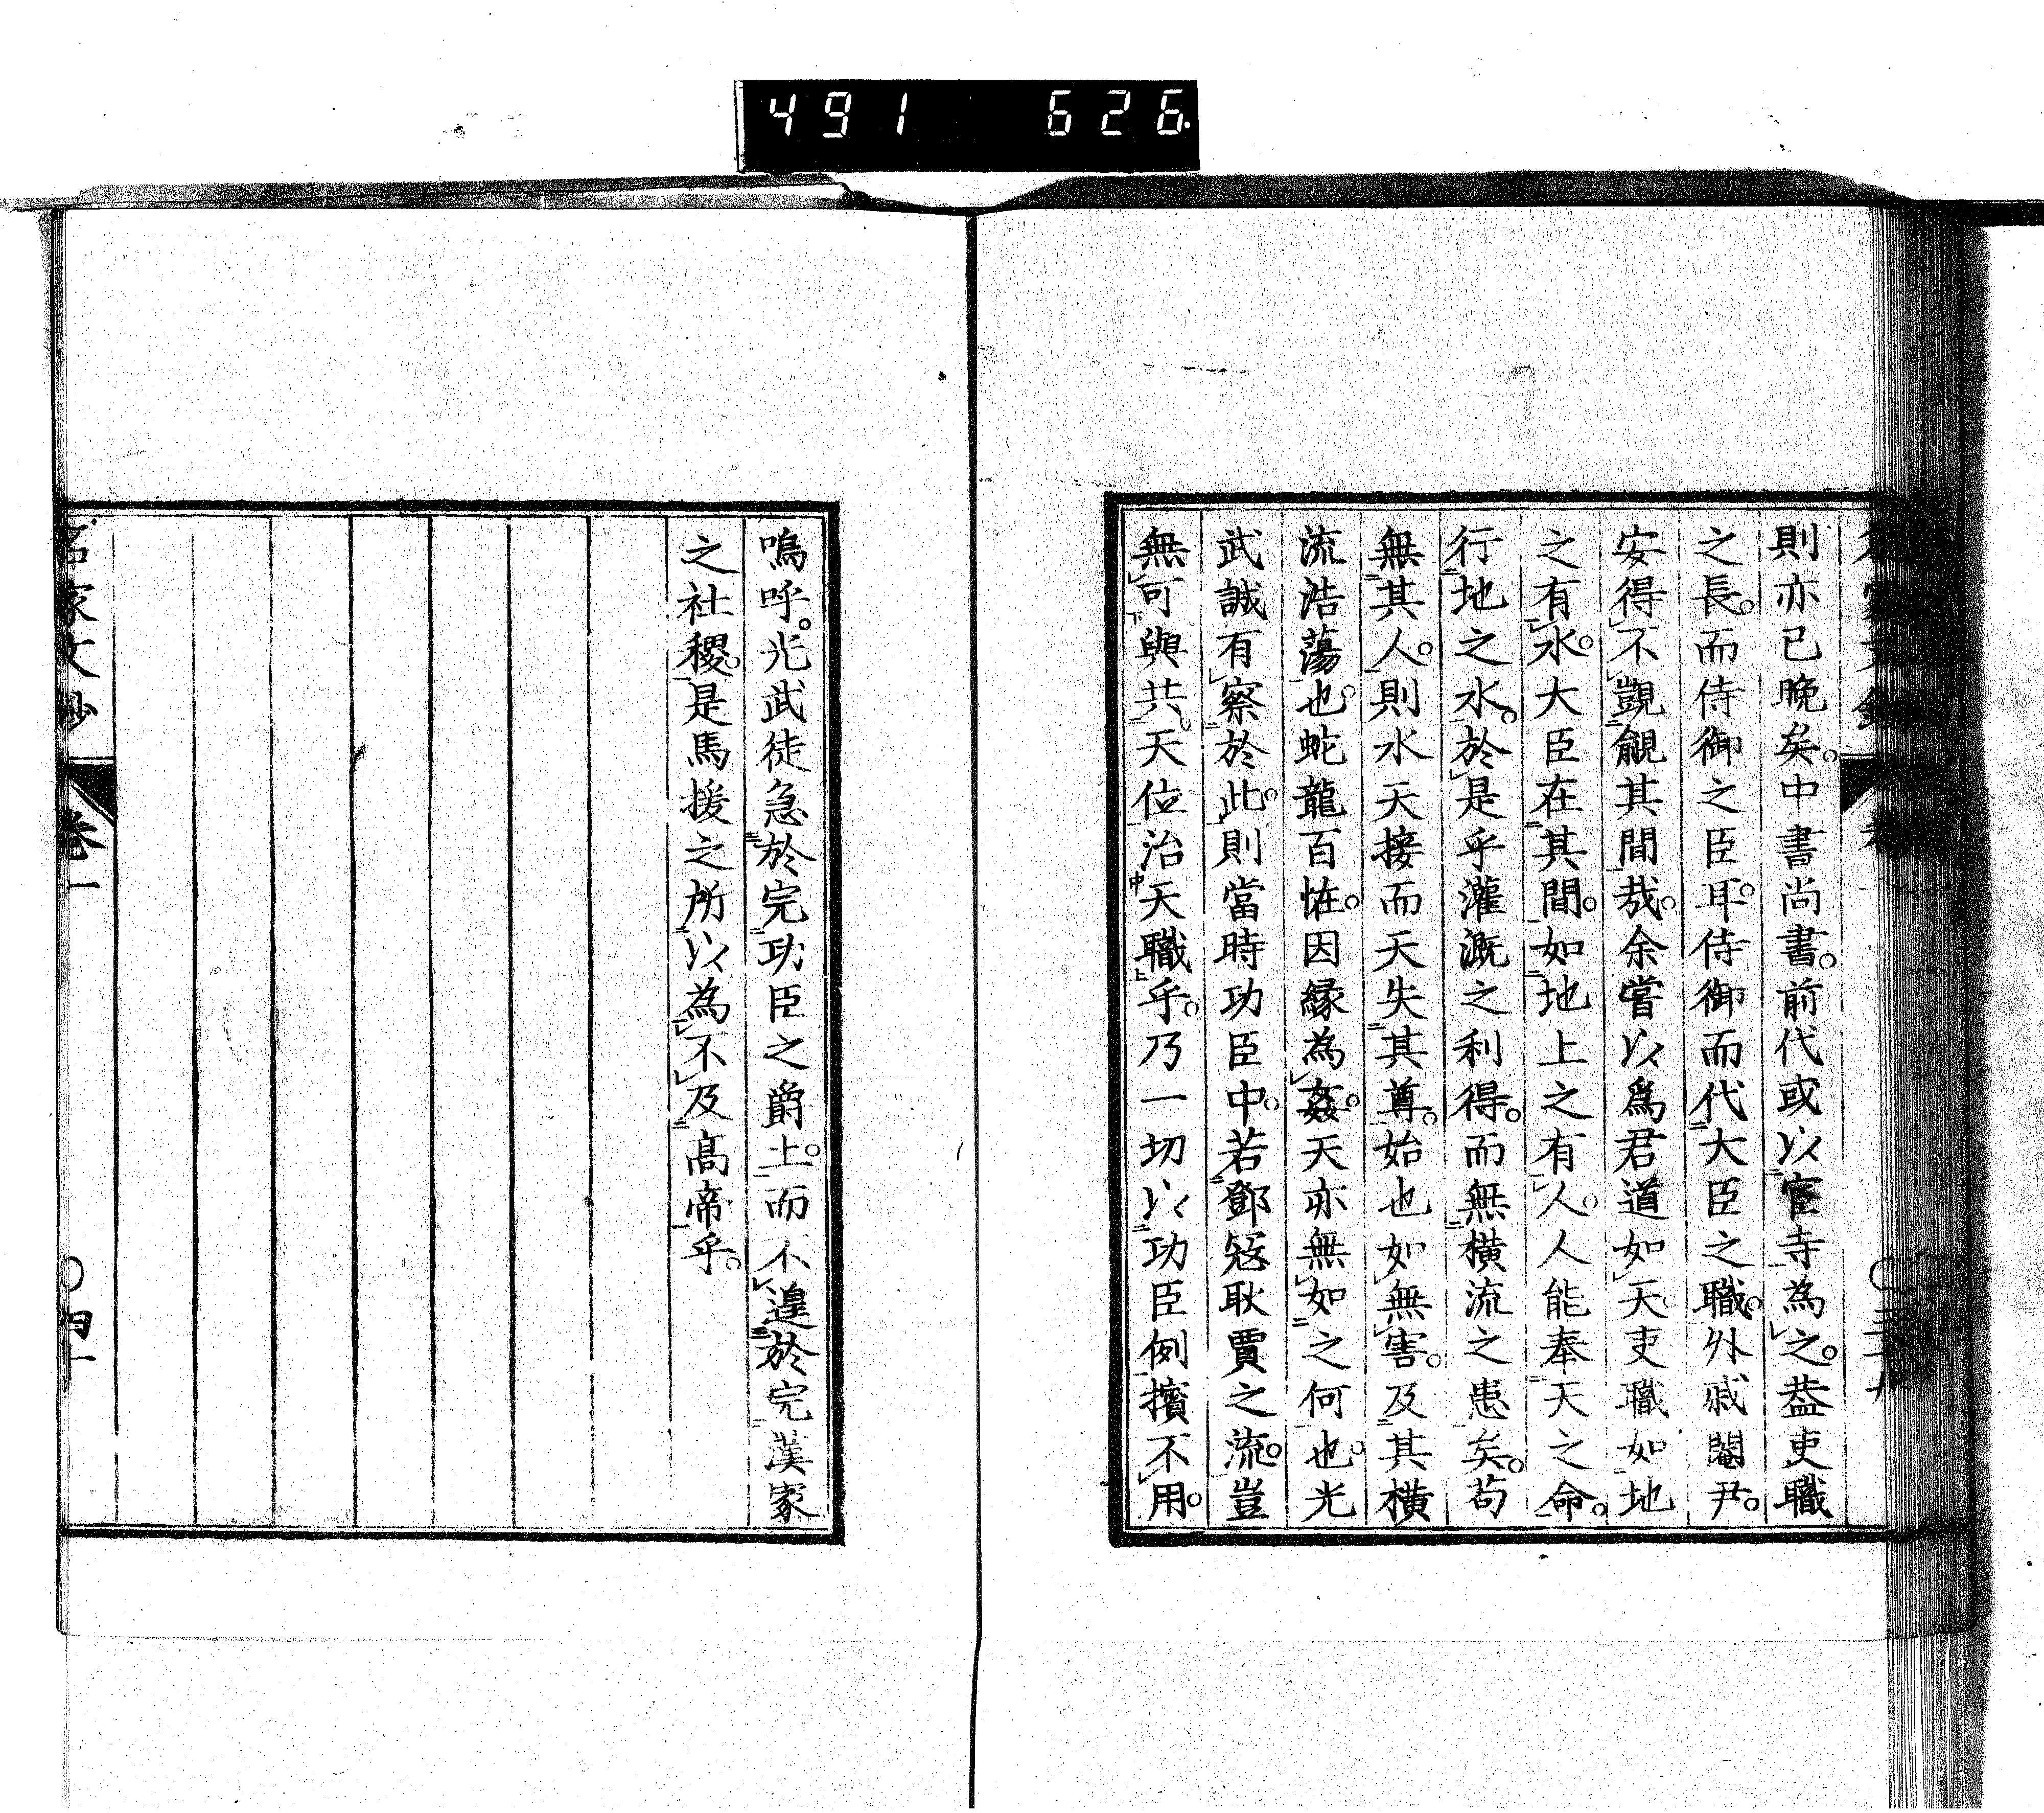 491 626
則亦已晚矣。中書尚書。前代或以宦寺為之。葢吏職
之長。而侍御之臣耳。侍御而代大臣之職。外戚閹尹。
安得不覬覦其間哉。余嘗以爲君道如天。吏職如地
之有水。大臣在其間。如地上之有人。人能奉天之命。
行地之水。於是乎灌漑之利得。而無橫流之患矣。苟
無其人。則水天接而天失其尊。始也如無害。及其橫
流浩蕩也。蛇龍百恠。因緣為姦。天亦無如之何也。光
武誠有察於此。則當時功臣中。若鄧寇耿賈之流。豈
無可與共天位治天職乎。乃一切以功臣例擯不用。
嗚呼。光武徒急於完功臣之爵土。而不遑於完漢家
之社稷。是馬援之所以為不及高帝乎。
名家文鈔 卷一 〇四十